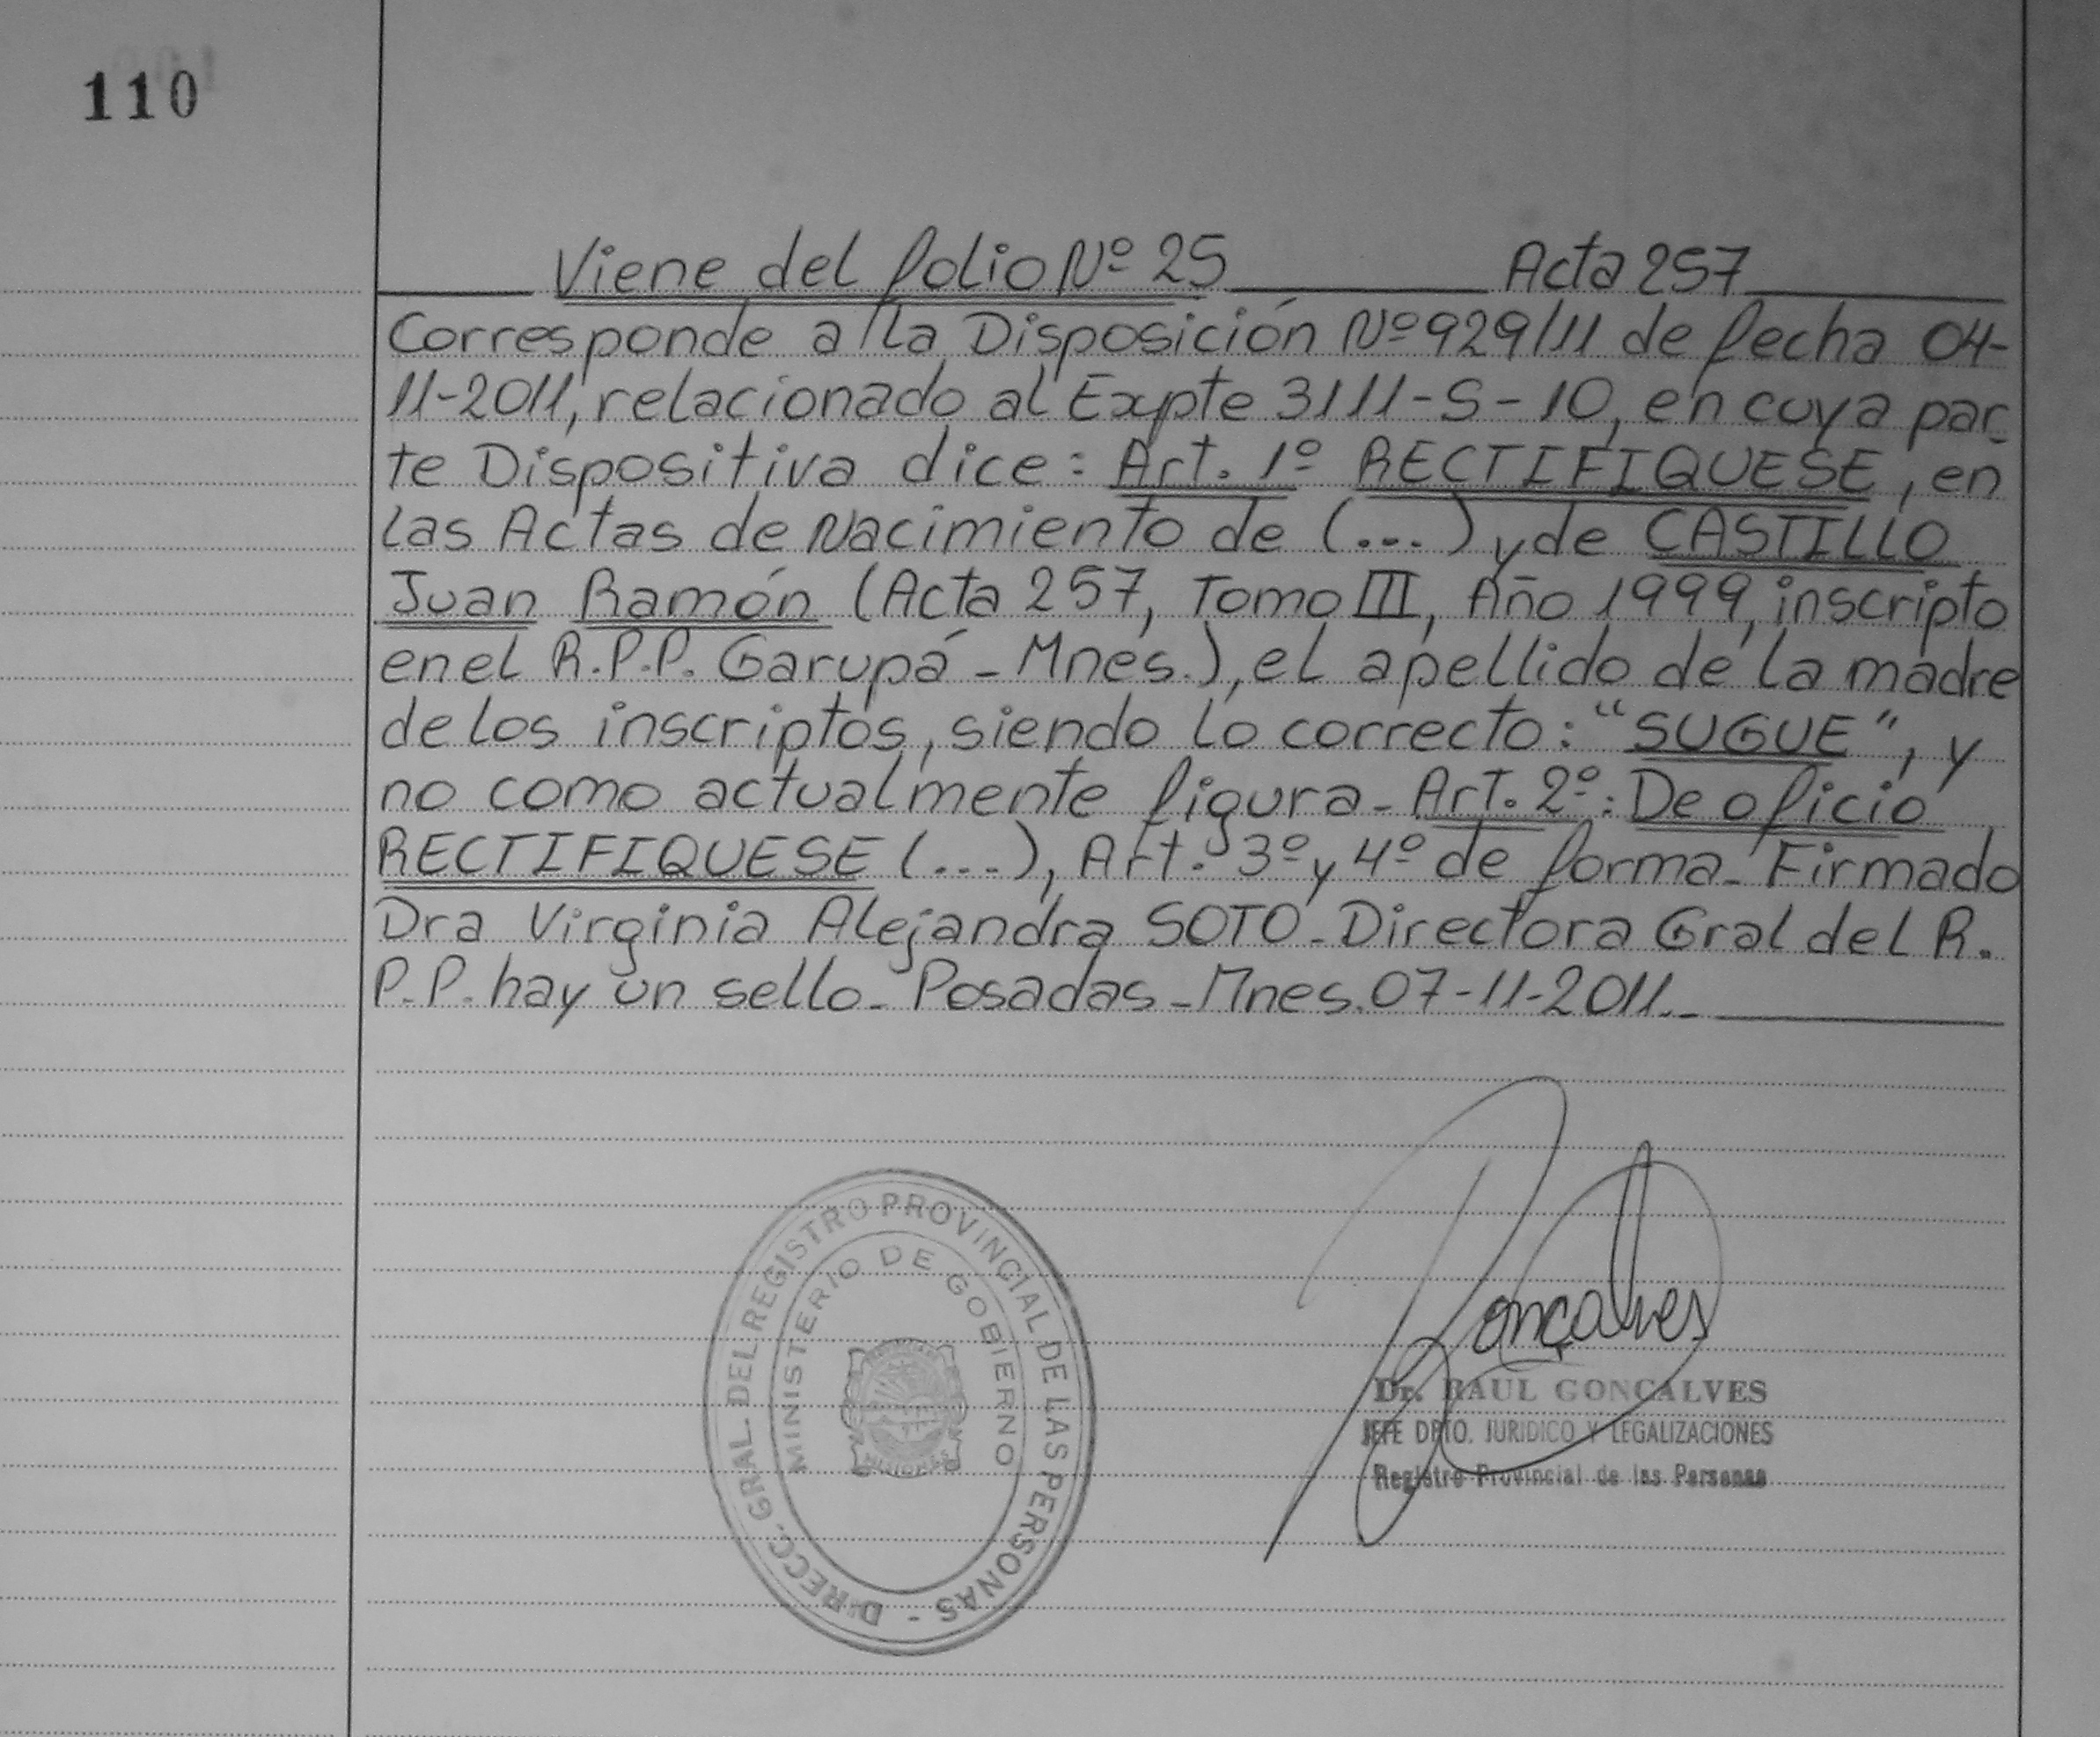 110
Viene del folio Nº 25 Acta 257
Corresponde a la Disposición Nº 929/11 de fecha 04-
11-2011, relacionado al Expte 3111-S-10, en cuya par-
te Dispositiva dice: Art. 1º RECTIFIQUESE, en
las Actas de Nacimiento de (...) y de CASTILLO
Juan Ramón (Acta 257, Tomo III, Año 1999, inscripto
en el R.P.P. Garupá - Mnes.), el apellido de la madre
de los inscriptos, siendo lo correcto: "SUGUE", y
no como actualmente figura - Art. 2º: De oficio
RECTIFIQUESE (...), Art. 3º y 4º de forma - Firmado
Dra Virginia Alejandra SOTO - Directora Gral del R.
P.P. hay un sello - Posadas - Mnes. 07-11-2011.-
DIRECC. GRAL. DEL REGISTRO PROVINCIAL DE LAS PERSONAS -
MINISTERIO DE GOBIERNO
Gonçalves
Dr. RAUL GONÇALVES
JEFE DPTO. JURIDICO Y LEGALIZACIONES
Registro Provincial de las Personas